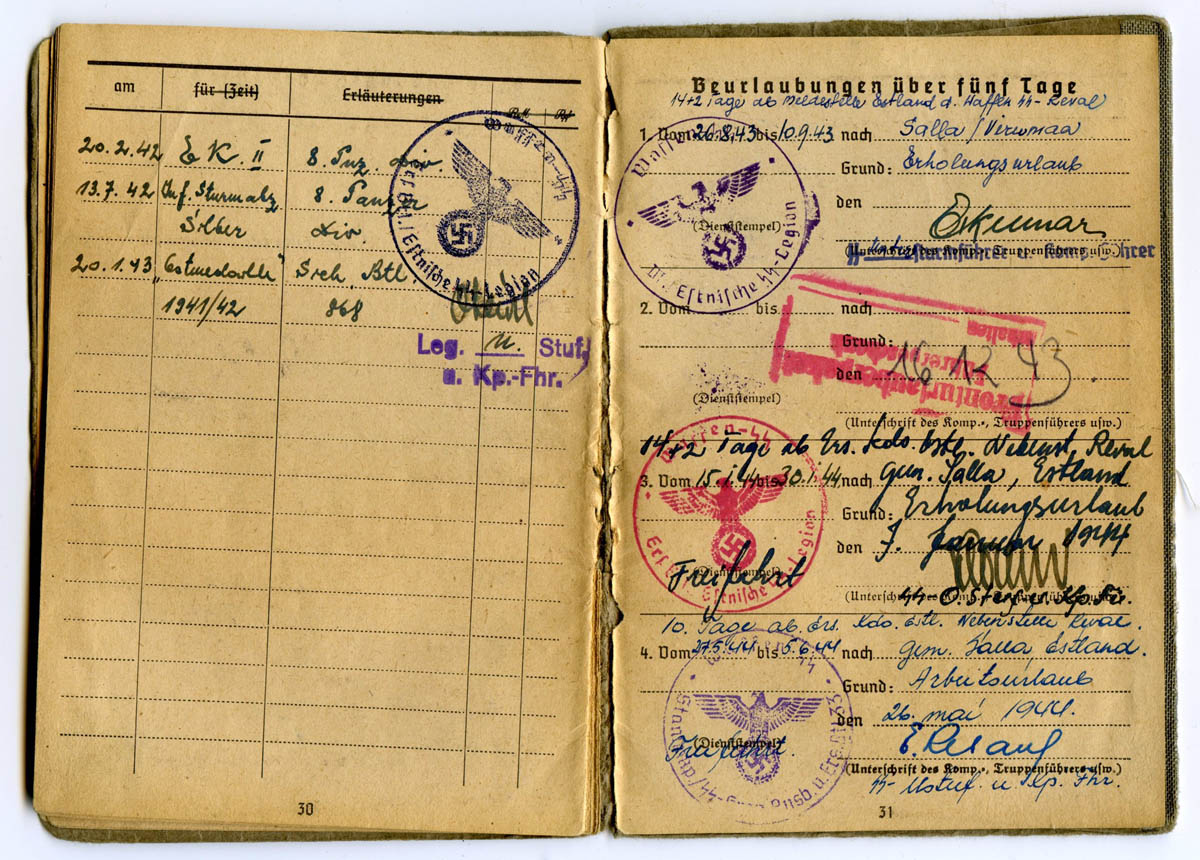 am für (Zeit) Erläuterungen
20.2.42 E.K. II 8. Pnz. Div.
13.7.42 Inf. Sturmabz. 8. Panzer
Silber Div.
20.1.43 "Ostmedaille" Btl.
1941/42 868
Waffen-SS
Estnische SS-Legion
Leg. u. Stuf.
u. Kp.-Fhr.
30
Beurlaubungen über fünf Tage
14+2 Tage ab Meldestelle Estland d. Waffen SS-Reval
1. Vom 26.8.43 bis 10.9.43 nach Salla/Virumaa
Grund: Erholungsurlaub
den
(Dienststempel)
(Unterschrift des Komp.-, Truppenführers usw.)
Waffen
Estnische SS-Legion
2. Vom bis nach
Grund:
den 16 12 43
(Dienststempel)
(Unterschrift des Komp.-, Truppenführers usw.)
14+2 Tage ab Ers. Kdo. Estl. Nebenst. Reval
3. Vom 15.1.44 bis 30.1.44 nach gem. Salla, Estland
Grund: Erholungsurlaub
den 7. Januar 1944
(Dienststempel)
Freifahrt
(Unterschrift des Komp.-, Truppenführers usw.)
Waffen-SS
Estnische SS-Legion
10. Tage ab. Ers. Kdo. Estl. Nebenstelle Reval.
4. Vom 27.5.44 bis 5.6.44 nach gem. Salla Estland.
Grund: Arbeitsurlaub
den 26. mai 1944.
(Dienststempel)
Freifahrt.
(Unterschrift des Komp.-, Truppenführers usw.)
SS-Ustuf. u. Kp. Fhr.
31